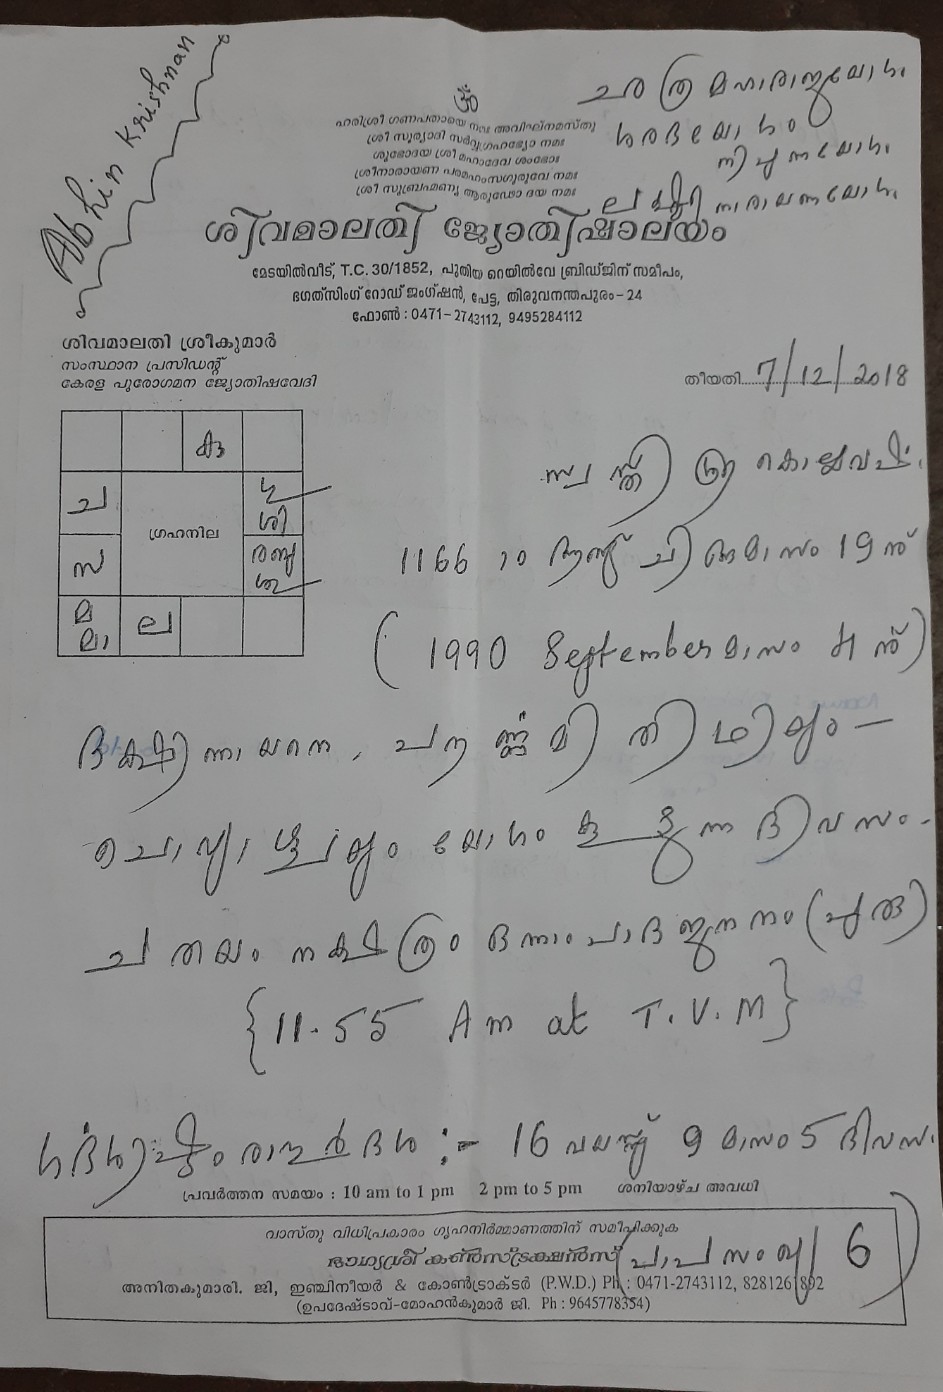 Abhin Krishnan
ഹരിശ്രീ ഗണപതായെ നമഃ അവിഘ്നമസ്തു
ശ്രീ സൂര്യാദി സർവ്വഗ്രഹഭ്യോ നമഃ
ശുഭോദയ ശ്രീ മഹാദേവ ശംഭോഃ
ശ്രീനാരായണ പരമഹംസഗുരുവേ നമഃ
ശ്രീ സുബ്രഹ്മണ്യ ആരൂഢോ ദയ നമഃ
നിപുണയോഗം
ലക്ഷ്മി നാരായണയോഗം
ശിവമാലതി ജ്യോതിഷാലയം
മേടയിൽവീട്, T.C. 30/1852, പുതിയ റെയിൽവേ ബ്രിഡ്ജിന് സമീപം,
ഭഗത്സിംഗ് റോഡ് ജംഗ്ഷൻ, പേട്ട, തിരുവനന്തപുരം - 24
ഫോൺ : 0471-2743112, 9495284112
ശിവമാലതി ശ്രീകുമാർ
സംസ്ഥാന പ്രസിഡന്റ്
കേരള പുരോഗമന ജ്യോതിഷവേദി
തീയതി 7/12/2018
കു
ച
ഗ്രഹനില
സ
മ
ല
സ്വസ്തി ശ്രീ കൊല്ലവർഷം
1166 ാം ആണ്ട് ചിങ്ങമാസം 19 ന്
(1990 September മാസം 4 ന്)
ദക്ഷിണായനെ, പൗർണ്ണമി തിഥിയും -
ചൊവ്വാഴ്ചയും യോഗം കൂടുന്ന ദിവസം -
ചതയം നക്ഷത്രം ഒന്നാംപാദ ജനനം (പുരു)
{11.55 Am at T.V.M}
16 വയസ്സ് 9 മാസം 5 ദിവസം
പ്രവർത്തന സമയം : 10 am to 1 pm 2 pm to 5 pm ശനിയാഴ്ച അവധി
വാസ്തു വിധിപ്രകാരം ഗൃഹനിർമ്മാണത്തിന് സമീപിക്കുക
ഭാഗ്യശ്രീ കൺസ്ട്രക്ഷൻസ് (പാപസംഖ്യ 6)
അനിതകുമാരി. ജി, ഇഞ്ചിനീയർ & കോൺട്രാക്ടർ (P.W.D.) Ph : 0471-2743112, 8281261892
(ഉപദേഷ്ടാവ്-മോഹൻകുമാർ ജി. Ph : 9645778354)